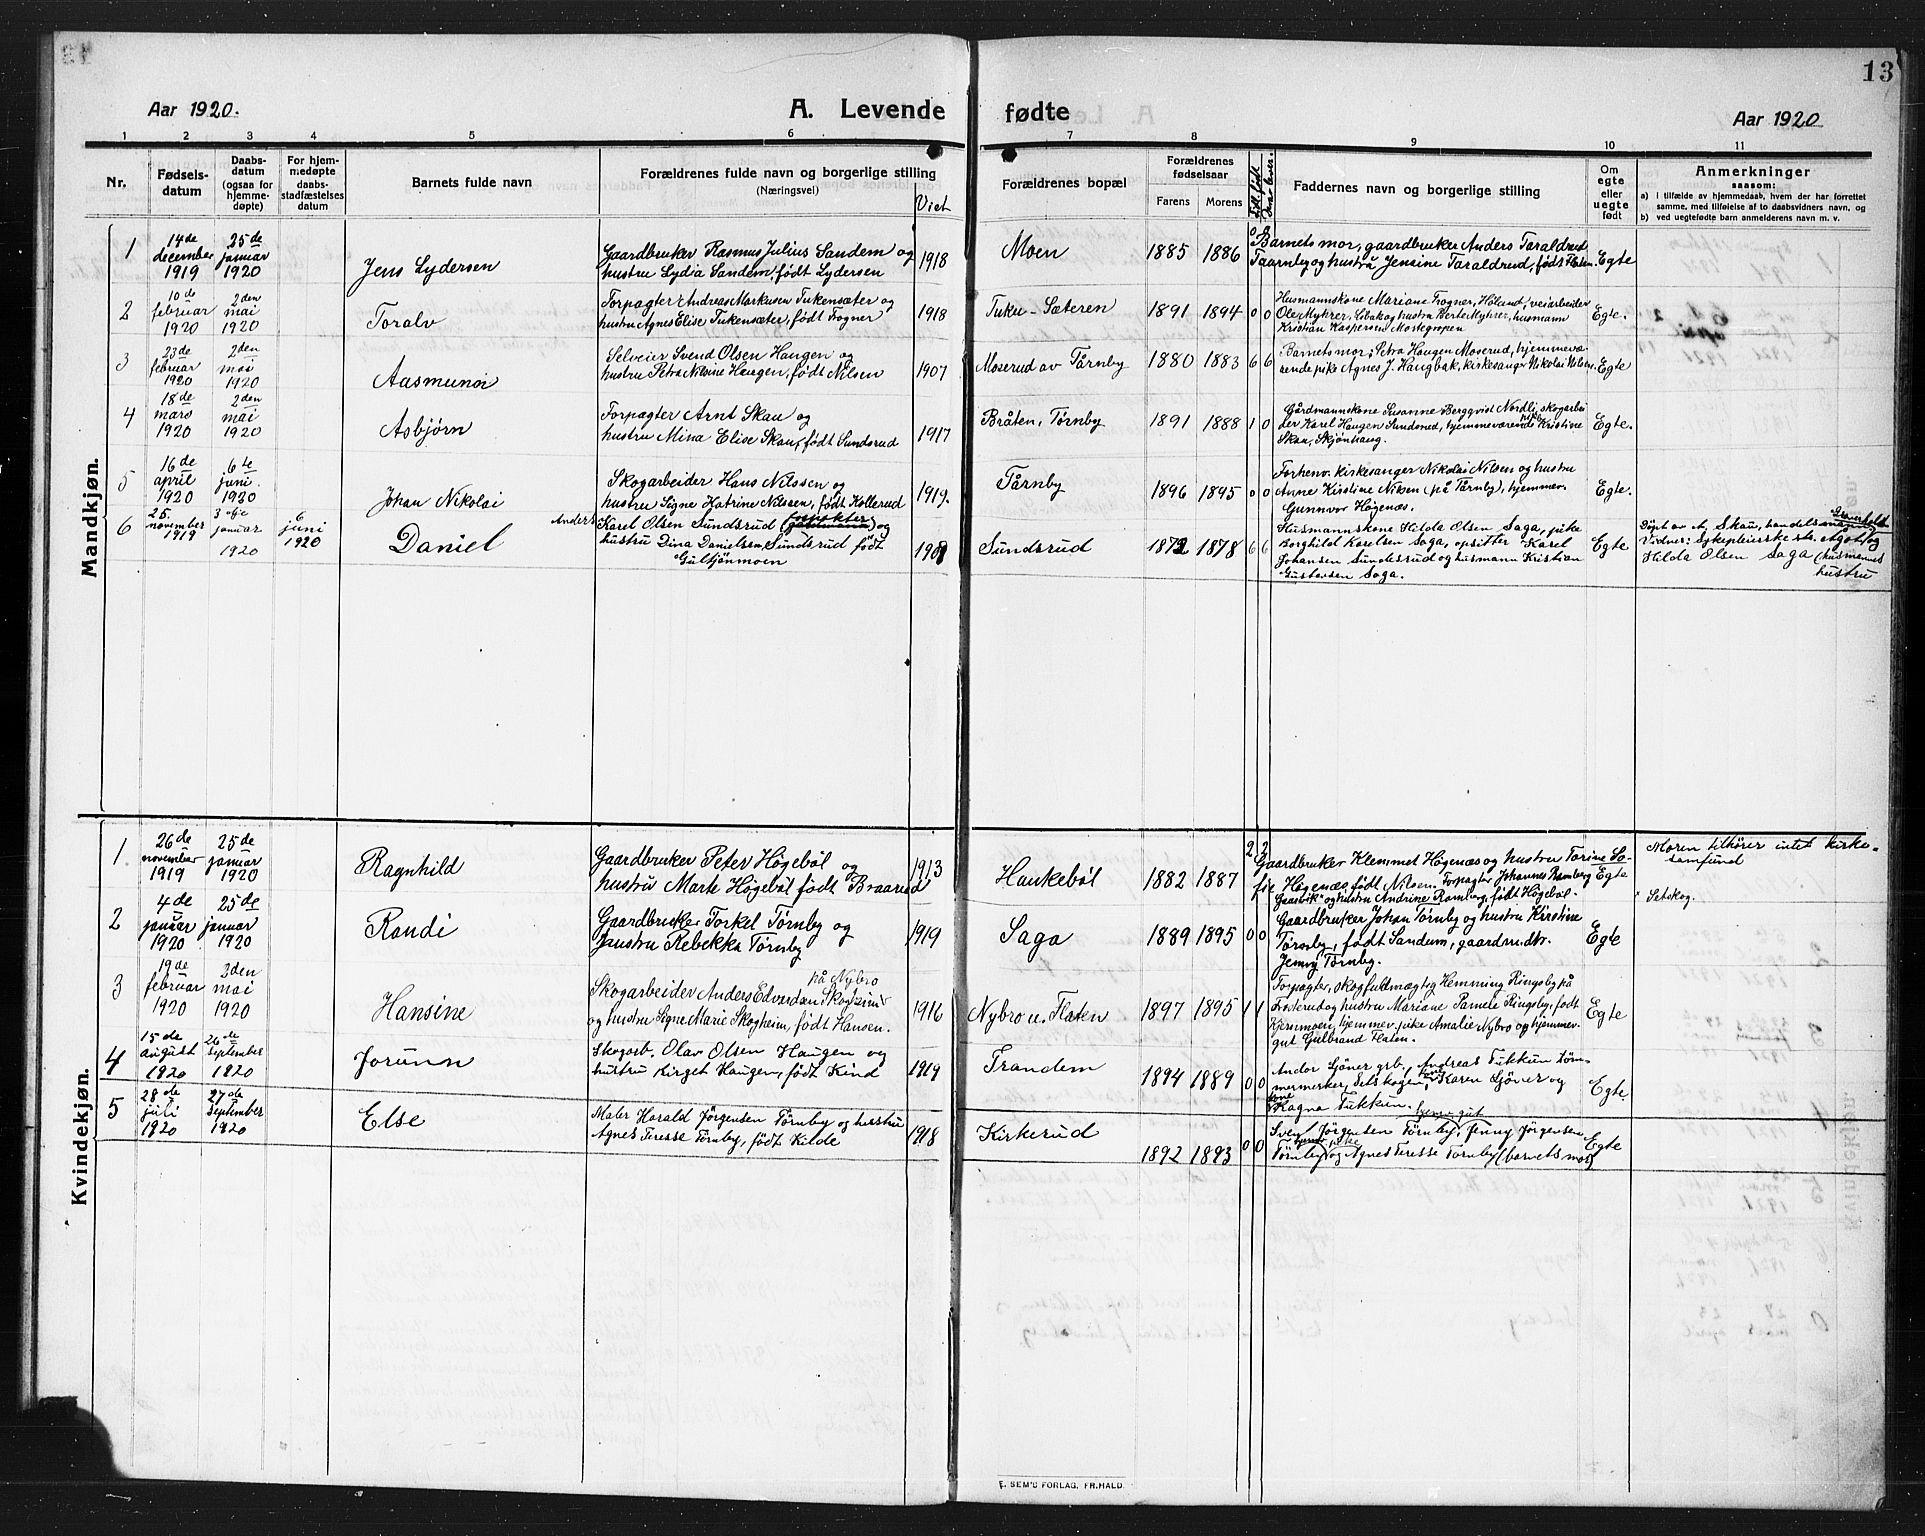 13
Aar 1920.
A. Levende
fødte
Aar 1920
1 2 3 4 5 6 7 8 9 10 11
Nr.
Fødsels-
datum
Daabs-
datum
(ogsaa for
hjemme-
døpte)
For hjem-
medøpte
daabs-
stadfæstelses
datum
Barnets fulde navn
Forældrenes fulde navn og borgerlige stilling
(Næringsvei)
Viet
Forældrenes bopæl
Forældrenes
fødselsaar
Farens Morens
Faddernes navn og borgerlige stilling
Om
egte
eller
uegte
født
Anmerkninger
saasom:
a) i tilfælde av hjemmedaab, hvem der har forrettet
samme, med tilføielse af to daabsvidners navn, og
b) ved uegtefødte barn anmelderens navn m. v.
Mandkjøn.
1
14de
december
1919
25de
januar
1920
Jens Lydersen
Gaardbruker Rasmus Julius Sandem og
hustru Lydia Sandem, født Lydersen
1918
Moen
1885 1886 0 0
Barnets mor, gaardbruker Anders Taraldrud
Taarnby og hustru Jensine Taraldrud, født Flaten.
Egte
2
10de
februar
1920
2den
mai
1920
Toralv
Forpagter Andreas Markusen Tukensæter og
hustru Agnes Elise Tukensæter, født Fogner
1918
Tuku-Sæteren
1891 1894 0 0
Husmannskone Mariane Fogner, Høland, veiarbeider
Ole Myhrer, Libak og hustru Berte Myhrer, husmann
Kristian Kaspersen Mostegropen
Egte.
3
23de
februar
1920
2den
mai
1920
Aasmund
Selveier Svend Olsen Haugen og
hustru Petra Nilsine Haugen, født Nilsen
1907
Moserud av Tårnby
1880 1883 6 6
Barnets mor, Petra Haugen Moserud, hjemmevæ-
rende pike Agnes J. Haugbak, kirkesanger Nikolai Nilsen
Egte
4
18de
mars
1920
2den
mai
1920
Asbjørn
Forpagter Arnt Skau og
hustru Mina Elise Skau, født Sundsrud
1917
Bråten, Tørnby
1891 1888 1 0
Gårdmannskone Susanne Bergqvist Nordli, skogarbei
der Karel Haugen Sundsrud, hjemmeværende pike Kristine
Skau, Skjønhaug.
Egte.
5
16de
april
1920
6te
juni.
1920
Johan Nikolai
Skogarbeider Hans Nilssen og
hustru Signe Katrine Nilsen, født Kollerud
1919.
Tårnby
1896 1895 0 0
Forhenv. kirkesanger Nikolai Nilsen og hustru
Anne Kirstine Nilsen (på Tårnby), hjemmev.
Gunnvor Høgenæs.
Egte.
6
25.
november
1919
3dje
januar
1920
6
juni
1920
Daniel
Anders Karel Olsen Sundsrud (gårdmann) og
hustru Dina Danielsen Sundsrud født
Gultjønmoen
Sundsrud
1872 1878 6 6
Husmannskone Hilda Olsen Saga, pike
Borghild Karelsen Saga, opsitter Karel
Johansen Sundsrud og husmann Kristian
Gustavsen Saga.
Egte
Døpt av A. Skau, handels
Vidner: Sykepleierske og
Hilda Olsen Saga (husmennes
hustru
Kvindekjøn.
1
26de
november
1919
25de
januar
1920
Ragnhild
Gaardbruker Peter Høgebøl og
hustru Marte Høgebøl født Braarud
1913
Haukebøl
1882 1887 2 2
Gaardbruker Klemmet Høgenæs og hustru Torine So-
fie Høgenæs, født Nilsen. Forpagter Johannes Ramberg
Gaasvik og hustru Andrine Ramberg, født Høgebøl.
Egte
Moren tilhører intet kirke-
samfund
Setskog.
2
4de
januar
1920
25de
januar
1920
Randi
Gaardbruker Torkel Tørnby og
hustru Rebekka Tørnby
1919
Saga
1889 1895 0 0
Gaardbruker Johan Tørnby og hustru Kirstine
Tørnby, født Sandum, gaardm.dtr.
Jenny Tørnby.
Egte
3
19de
februar
1920
2den
mai
1920
Hansine
på Nybro
Skogarbeider Anders Edvardsen Skogheim
og hustru Signe Marie Skogheim, født Hansen.
1916
Nybro u. Flaten
1897 1895 1 1
Forpagter, skogfuldmægtig Hemming Ringsby på
Fosterud og hustru Mariane Pamele Ringsby, født
Kjernmoen, hjemmev. pike Amalie Nybro og hjemmev.
gut Gulbrand Flaten.
Egte
4
15de
august
1920
26de
september
1920
Jorunn
Skogarb. Olav Olsen Haugen og
hustru Birget Haugen, født Kind
1919
Trandem
1894 1889 0 0
Andor Sjøner grb., Andreas Tukkun tøm-
mermerker, Setskogen, kone Karen Sjøver og
kone Ragna Tukkun.
Egte.
5
28de
juli
1920
27de
september
1920
Else
Maler Harald Jørgensen Tørnby og hustru
Agnes Teresse Tørnby, født Kilde
1918
Kirkerud
1892 1893 0 0
hjemv. gut
Svend Jørgensen Tørnby, Jenny Jørgensen
Tørnby og Agnes Teresse Tørnby (barnets mor)
Egte
E. SEM'S FORLAG, FR.HALD